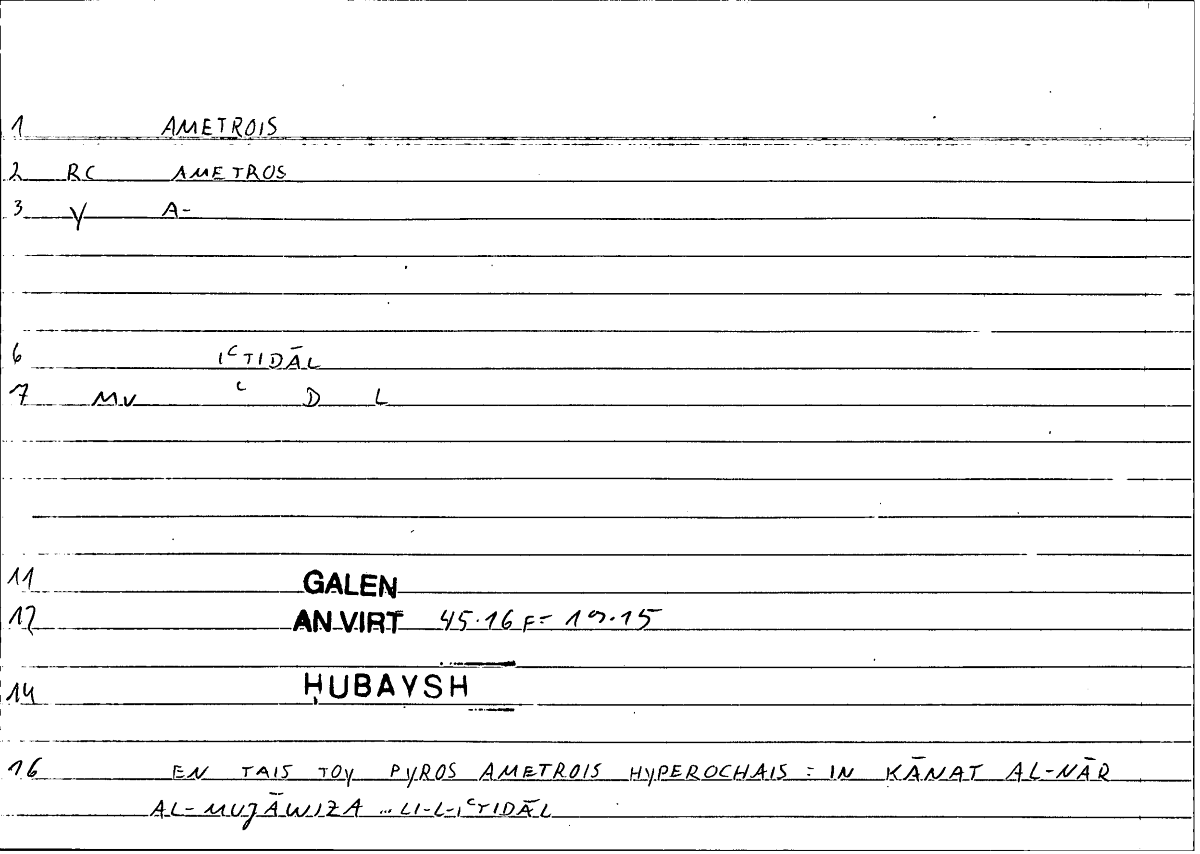 1 AMETROIS
2 RC AMETROS
3 Y A-
6 IʿTIDĀL
7 MV ʿ D L
11 GALEN
12 AN VIRT 45.16 F = 19.15
14 ḤUBAYSH
16 EN TAIS TOY PYROS AMETROIS HYPEROCHAIS = IN KĀNAT AL-NĀR
AL-MUJĀWIZA ... LI-L-IʿTIDĀL